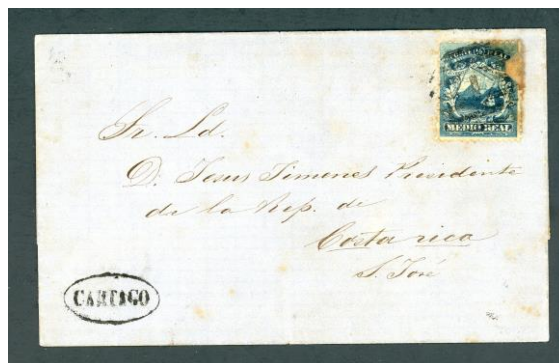 MEDIO REAL
Sr. Ld.
D. Jesus Jimenes Presidente
de la Rep. de
Costa rica
S. José
CARTAGO